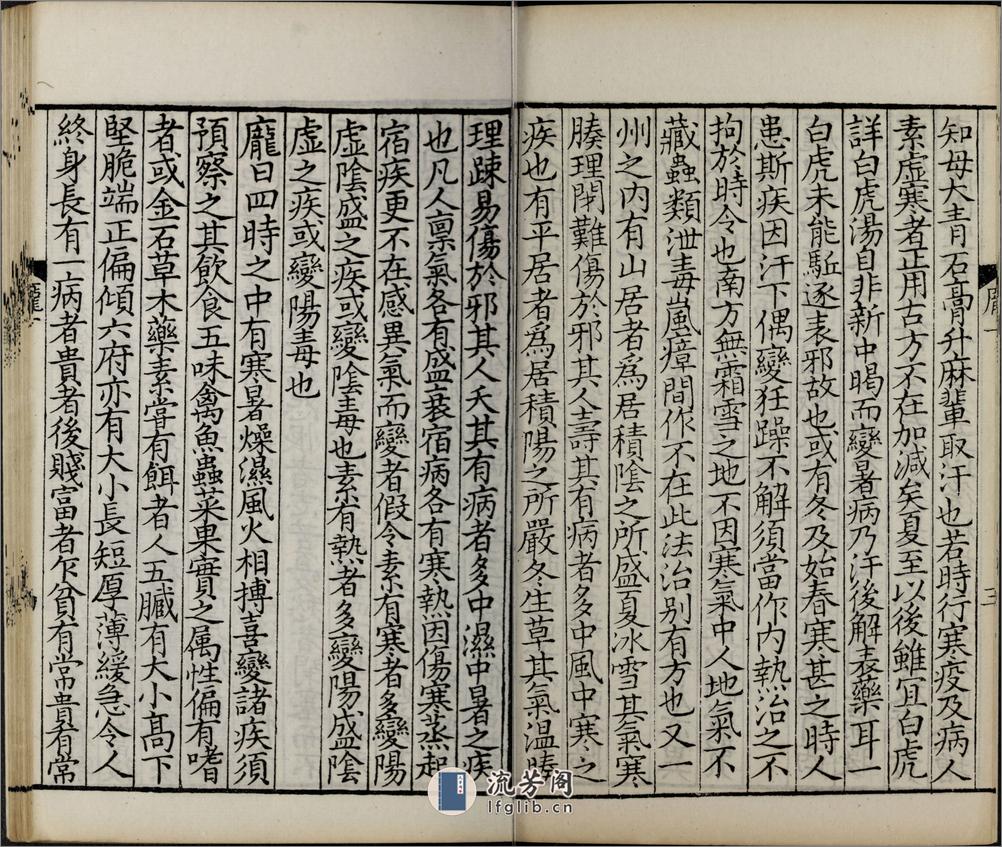 知母大青石膏升麻輩取汗也若時行寒疫及病人
素虛寒者正用古方不在加減矣夏至以後雖宜白虎
詳白虎湯自非新中暍而變暑病乃汗後解表藥耳一
白虎未能駈逐表邪故也或有冬及始春寒甚之時人
患斯疾因汗下偶變狂躁不解須當作内熱治之不
拘於時令也南方無霜雪之地不因寒氣中人地氣不
藏蟲類泄毒嵐瘴間作不在此法治別有方也又一
州之内有山居者爲居積陰之所盛夏冰雪其氣寒
腠理閉難傷於邪其人壽其有病者多中風中寒之
疾也有平居者爲居積陽之所嚴冬生草其氣温腠
理踈易傷於邪其人夭其有病者多中濕中暑之疾
也凡人禀氣各有盛衰宿病各有寒熱因傷寒蒸起
宿疾更不在感異氣而變者假令素有寒者多變陽
虛陰盛之疾或變陰毒也素有熱者多變陽盛陰
虛之疾或變陽毒也
龐曰四時之中有寒暑燥濕風火相搏喜變諸疾須
預察之其飲食五味禽魚蟲菜果實之属性偏有嗜
者或金石草木藥素甞有餌者人五臟有大小髙下
堅脆端正偏傾六府亦有大小長短厚薄緩急令人
終身長有一病者貴者後賤富者乍貧有常貴有常
龐一
三
流芳阁
lfglib.cn